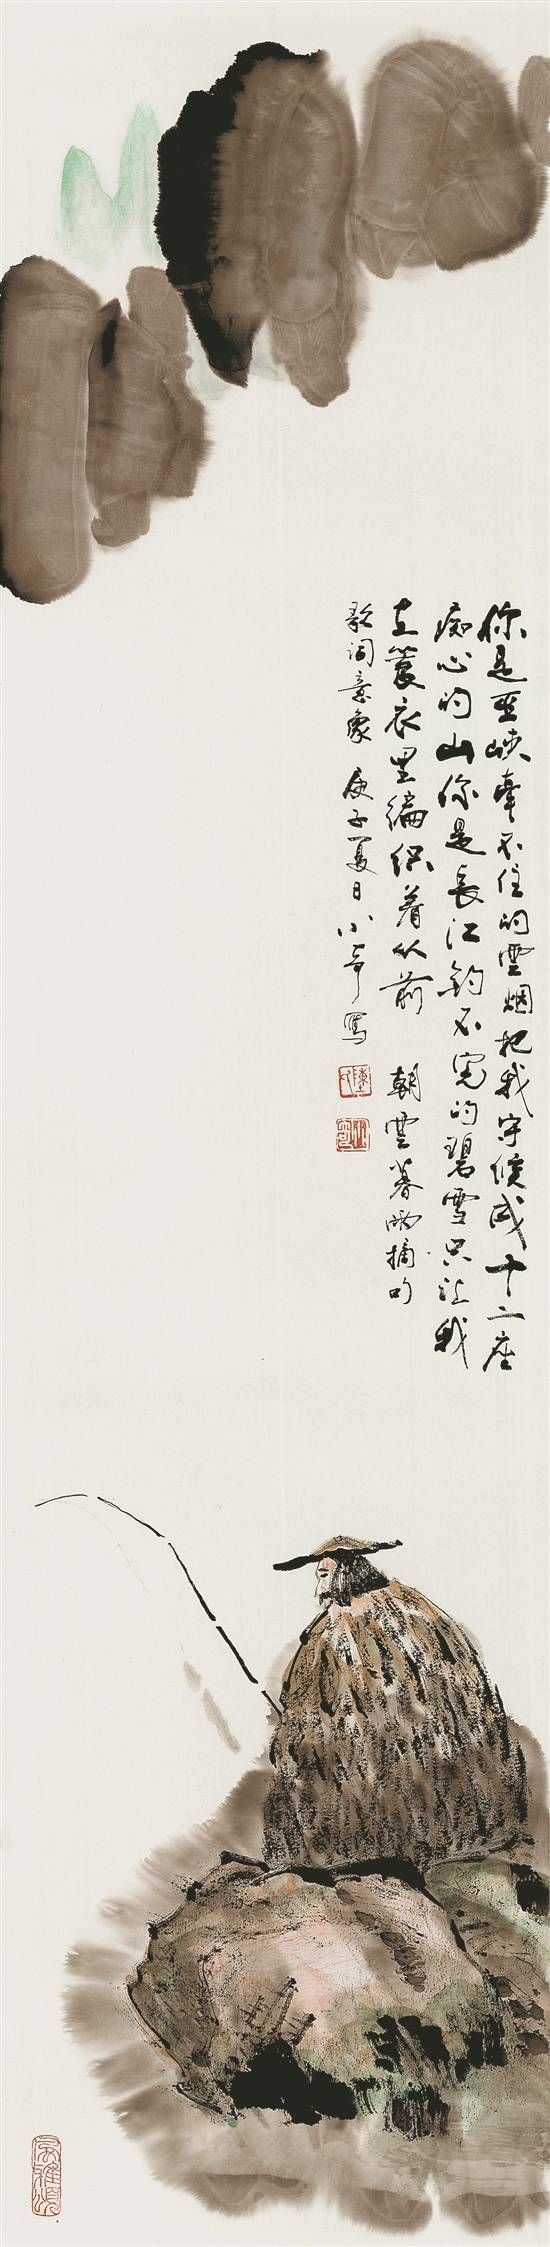 你是巫峡牵不住的雲烟把我守候成十二座
痴心的山你是長江钓不完的碧雪只让我
在蓑衣里编织着从前 朝雲暮雨摘句
歌词意象 庚子夏日小奇写